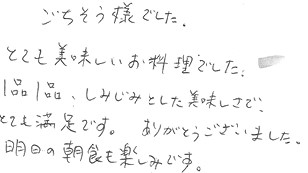 ごちそう様でした.
とても美味しいお料理でした.
1品1品、しみじみとした美味しさで、
とても満足です。 ありがとうございました。
明日の朝食も楽しみです。